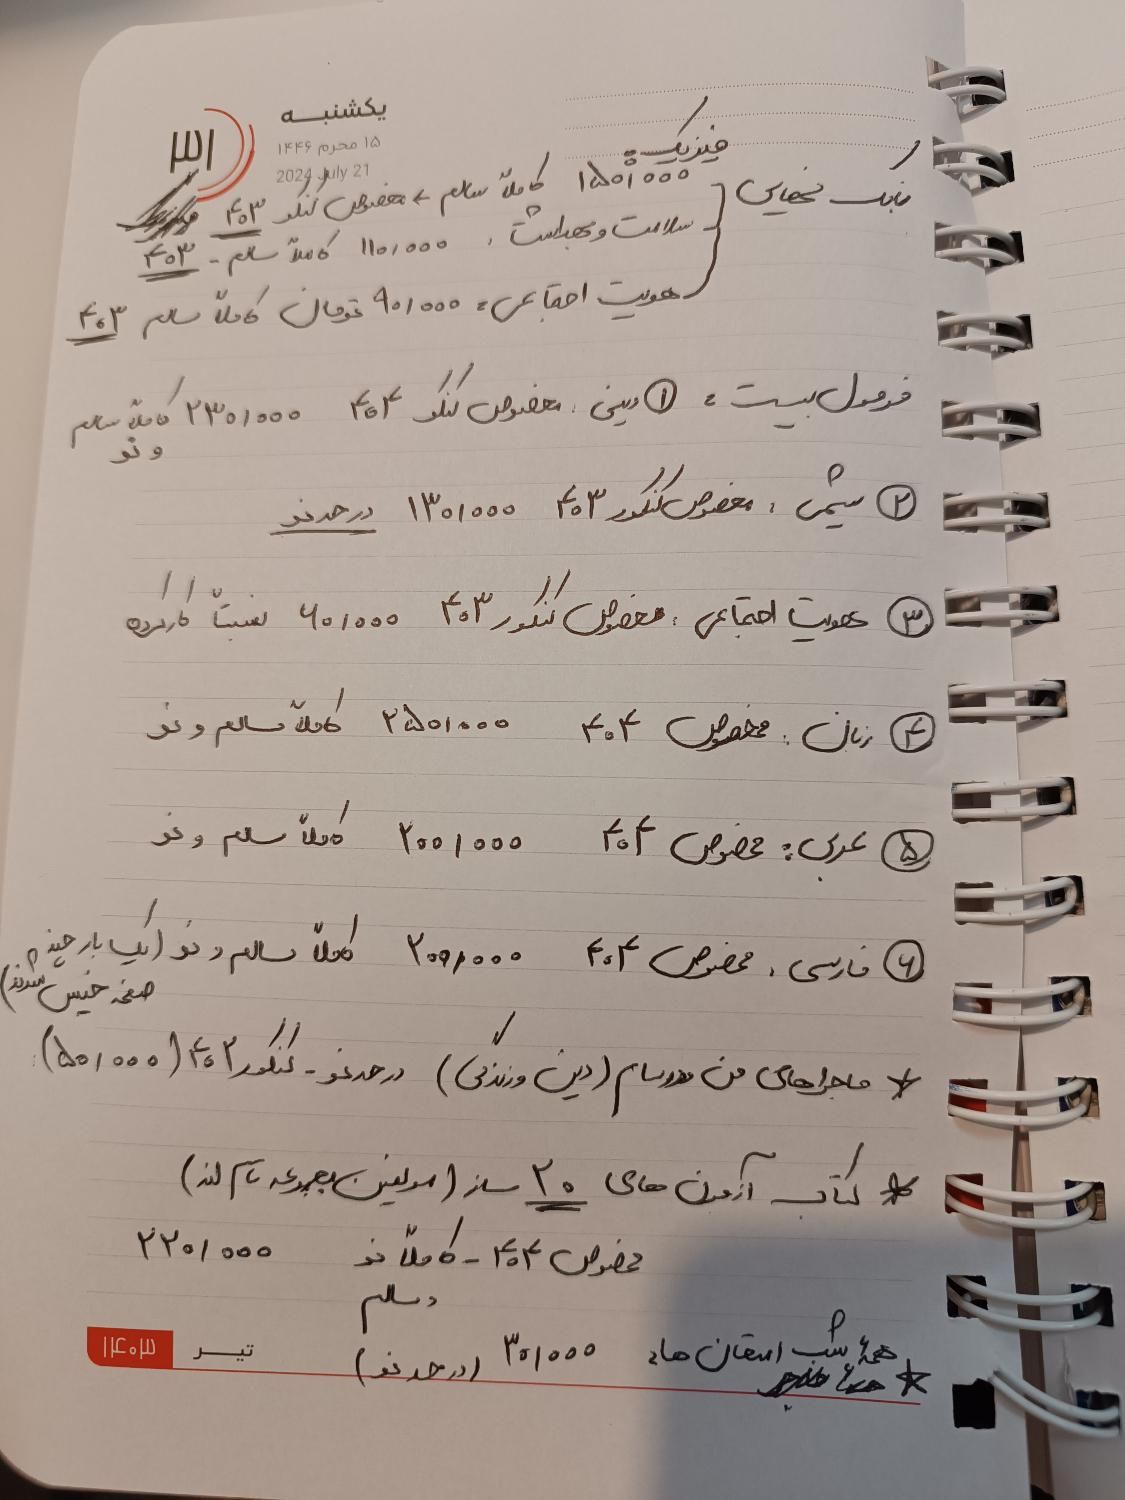 یکشنبه
۳۱
۱۵ محرم ۱۴۴۶
2024 July 21
بانک نهایی
فیزیک: ۱۵۰/۰۰۰ کاملاً سالم ← مخصوص کنکور ۴۰۳
سلامت و بهداشت: ۱۱۰/۰۰۰ کاملاً سالم - ۴۰۳
هویت اجتماعی: ۹۰/۰۰۰ تومان کاملاً سالم ۴۰۳
فرمول بیست: ① دینی: مخصوص کنکور ۴۰۴ ۲۳۰/۰۰۰ کاملاً سالم
و نو
② شیمی: مخصوص کنکور ۴۰۳ ۱۳۰/۰۰۰ در حد نو
③ هویت اجتماعی: مخصوص کنکور ۴۰۳ ۶۰/۰۰۰ نسبتاً کارکرده
④ زبان: مخصوص ۴۰۴ ۲۵۰/۰۰۰ کاملاً سالم و نو
⑤ عربی: مخصوص ۴۰۴ ۲۰۰/۰۰۰ کاملاً سالم و نو
⑥ فارسی: مخصوص ۴۰۴ ۲۰۰/۰۰۰ کاملاً سالم و نو (یک بار چند
صفحه خیس شدند)
* ماجراهای من و درسام (دین و زندگی) در حد نو - کنکور ۴۰۲ (۵۰/۰۰۰)
* کتاب آزمون های ۲۰ ساز (مولفین مجموعه تام لند)
مخصوص ۴۰۴ - کاملاً نو ۲۲۰/۰۰۰
و سالم
* همۀ شب امتحان ها: ۳۰/۰۰۰ (در حد نو)
تیر
۱۴۰۳